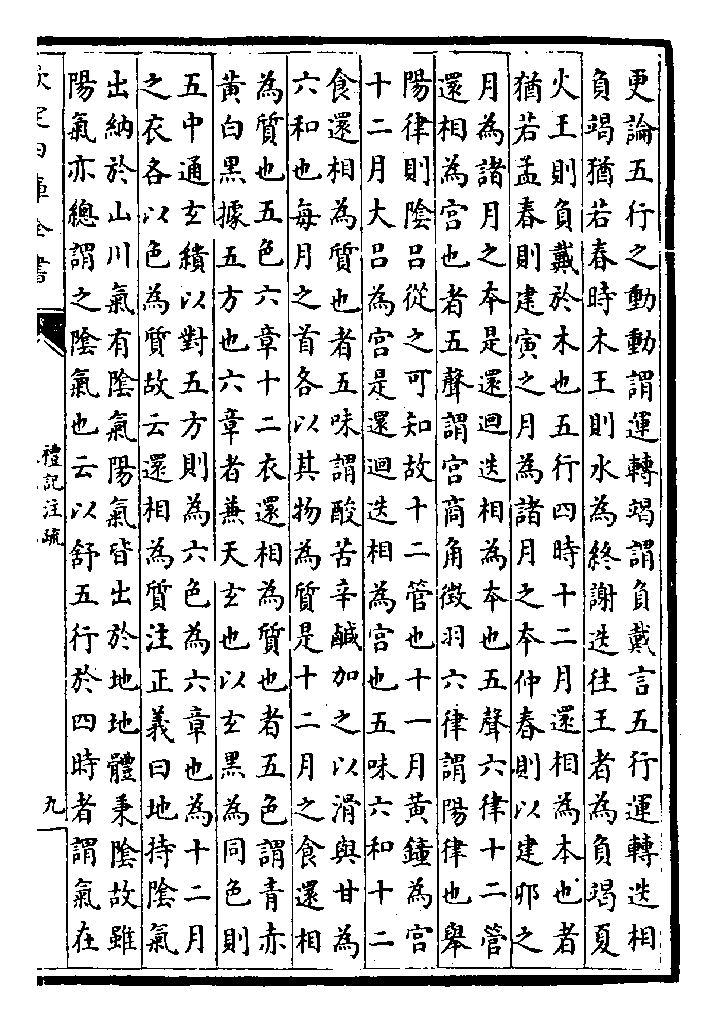 更論五行之動動謂運轉竭謂負戴言五行運轉迭相
負竭猶若春時木王則水為終謝迭往王者為負竭夏
火王則負戴於木也五行四時十二月還相為本也者
猶若孟春則建寅之月為諸月之本仲春則以建卯之
月為諸月之本是還迴迭相為本也五聲六律十二管
還相為宮也者五聲謂宮商角徵羽六律謂陽律也舉
陽律則陰呂從之可知故十二管也十一月黃鐘為宮
十二月大呂為宮是還迴迭相為宮也五味六和十二
食還相為質也者五味謂酸苦辛鹹加之以滑與甘為
六和也每月之首各以其物為質是十二月之食還相
為質也五色六章十二衣還相為質也者五色謂青赤
黃白黑據五方也六章者兼天玄也以玄黑為同色則
五中通玄繢以對五方則為六色為六章也為十二月
之衣各以色為質故云還相為質注正義曰地持陰氣
出納於山川氣有陰氣陽氣皆出於地地體秉陰故雖
陽氣亦總謂之陰氣也云以舒五行於四時者謂氣在
欽定四庫全書
禮記注疏
九